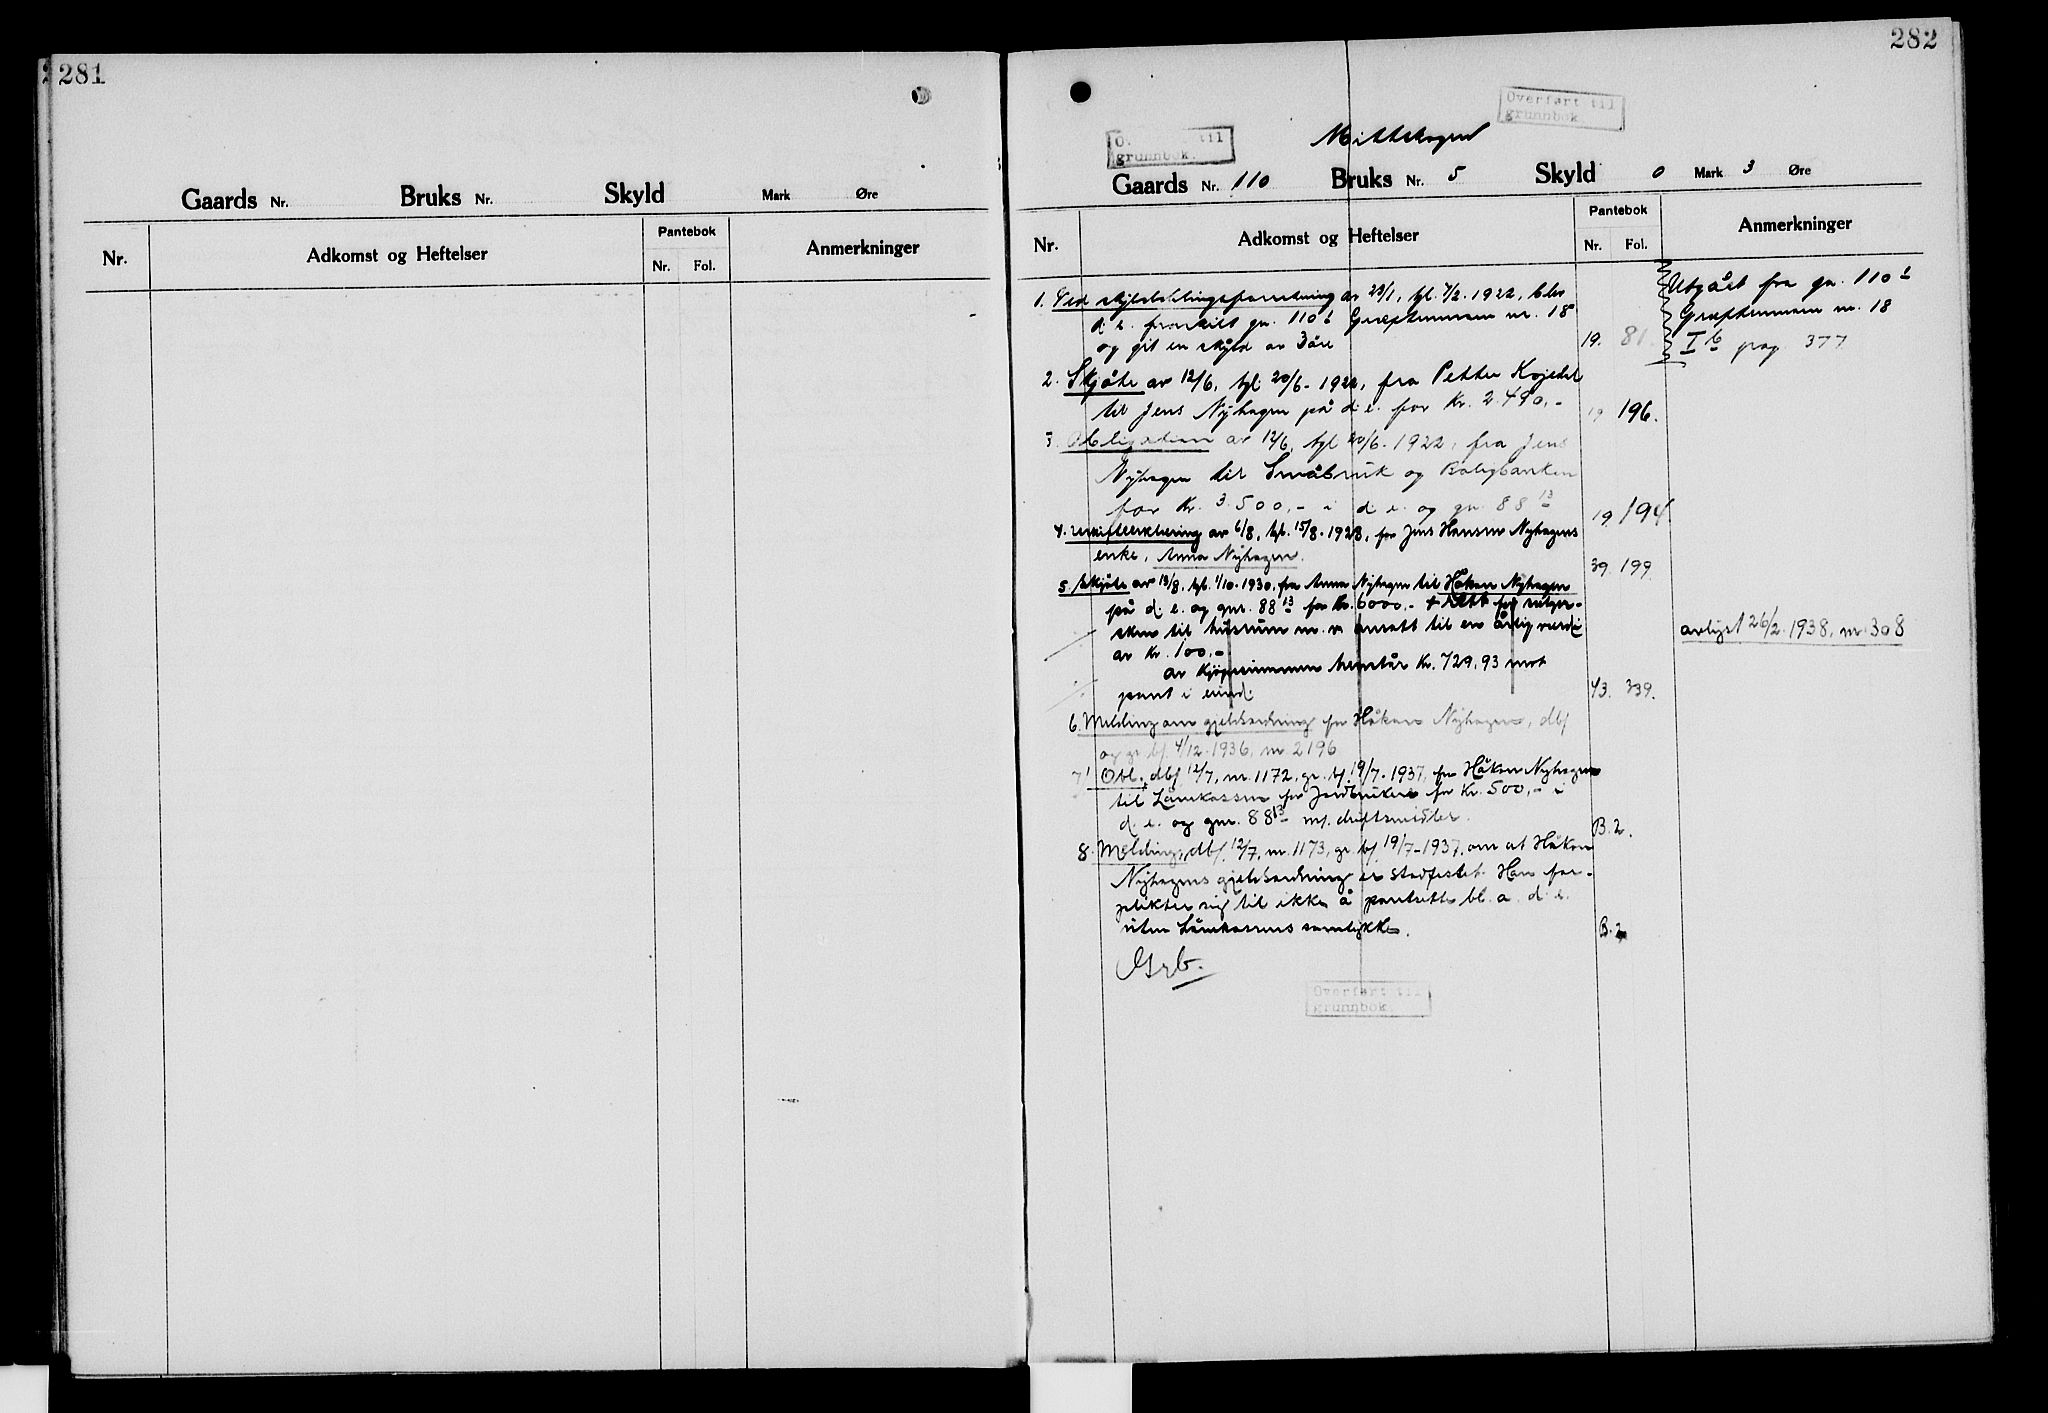 281
Gaards Nr. Bruks Nr. Skyld Mark Øre
Nr. Adkomst og Heftelser Pantebok Nr. Fol. Anmerkninger
282
Overført til
grunnbok.
O. til
grunnbok.
Gaards Nr. 110 Bruks Nr. 5 Skyld 0 Mark 3 Øre
Nr. Adkomst og Heftelser Pantebok Nr. Fol. Anmerkninger
1. Ved skyldelingsforretning av 23/1, tgl. 7/2. 1922, blev
d. e. fraskilt gn. 110 nr. 18
og git en skyld av 3 øre 19. 81.
Utgået fra gn. 110
nr. 18
I b pag. 377
2. Skjøte av 12/6, tgl. 20/6 - 1922, fra Petter
til Jens Nyhagen på d. e. for Kr. 2.490,- 19 196.
3. Obligation av 12/6, tgl 20/6 - 1922, fra Jens
Nyhagen til Småbruk og Boligbanken
for Kr. 3.500,- i d. e. og gn. 88 13 19. 194
4. Uskifteerklæring av 6/8, tgl. 15/8. 1928, for Jens Hansen Nyhagens
enke, Anna Nyhagen. 39. 199.
5. Skjøte av 13/8, tgl. 1/10. 1930, fra Anna Nyhagen til Håkon Nyhagen
på d. e. og gnr. 88 13 for Kr. 6000,- + rett for selger-
sken til husrum m. v. ansatt til en årlig verdi
av Kr. 100,-
Av kjøpesummen henstår Kr. 729,93 mot
pant i eiend. 43. 339.
avlyst 26/2. 1938, nr. 308
6. Melding om gjeldsordning for Håkon Nyhagen, dbf
og gr. bf 4/12. 1936, nr 2196
7. Obl. dbf 12/7, nr. 1172, gr. bf. 19/7. 1937, fra Håkon Nyhagen
til Lånekassen for Jordbrukere for Kr. 500,- i
d. e. og gnr. 88 13 m/. driftsmidler. B. 2.
8. Melding, dbf. 12/7, nr. 1173, gr. bf. 19/7 - 1937, om at Håkon
Nyhagens gjeldsordning er stadfestet. Han for-
plikter sig til ikke å pantsette bl. a. d. e.
uten Lånekassens samtykke. B. 2
Grb.
Overført til
grunnbok.